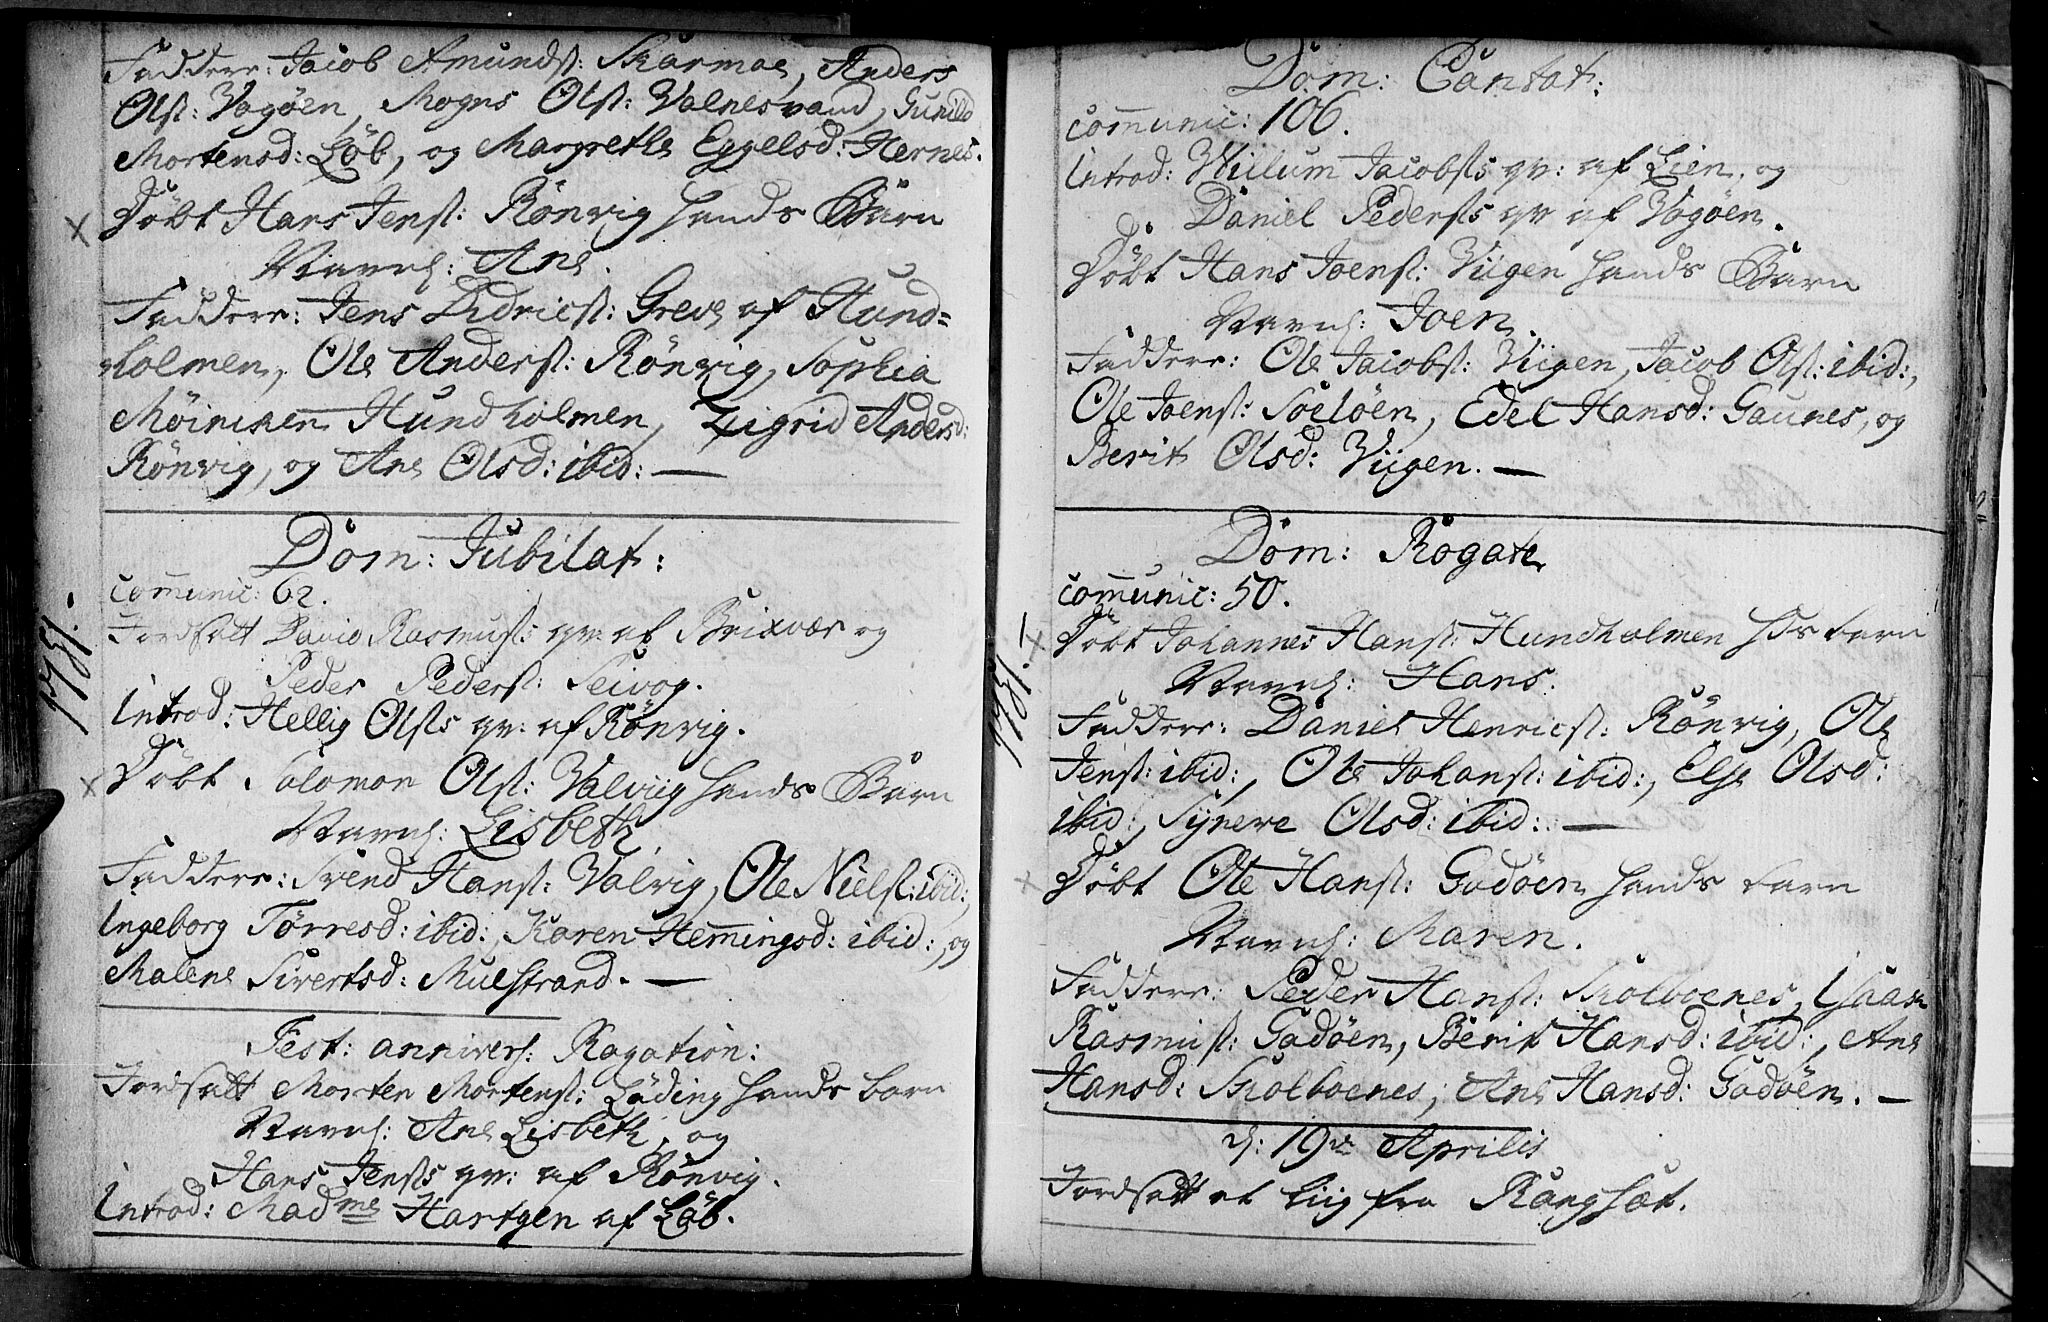 Faddere: Jacob Amundst: Skarmoe, Anders
Olst: Vagøen, Mogns Olst: Valnesvand, Gunild
Mortensd: Löb, og Margrethe Eggelsd: Hernes.
Döbt Hans Jenst: Rönvig hands Barn
Navnl: Ane.
Faddere: Jens Didricst: Greve af Hund=
holmen, Ole Anderst: Rönvig, Sophia
Möinichen Hundholmen, Zigrid Andersd:
Rönvig, og Ane Olsd: ibid: —
Dom: Jubilat:
1751.
communic: 62.
Jordfält David Rasmust: qv: af Brixvær og
Peder Pederst: Seivog.
Introd: Hellig Olsts qv: af Rönvig.
Döbt Salomon Olst: Valviig hands Barn
Navnl: Lisbeth.
Faddere: Svend Hanst: Valvig, Ole Nielst: ibid:,
Ingeborg Törresd: ibid:, Karen Hemingsd: ibid:, og
Malene Sivertsd: Mulstrand. —
Fest: annivers: Rogation:
Jordsatt Morten Mortenst: Löding hands barn
Navnl: Ane Lisbeth, og
Hans Jensts qv: af Rönvig.
Introd: Madme Hartgen af Löb.
Dom: Cantat:
communic: 106.
Introd: Wiilum Jacobsts qv: af Lien, og
Daniel Pedersts qv af Vagøen.
Döbt Hans Joenst: Viigen hands Barn
Navnl: Joen.
Faddere: Ole Jacobst: Viigen, Jacob Olst: ibid:,
Ole Joenst: Soelöen, Edel Hansd: Gaunes, og
Berit Olsd: Viigen. —
Dom: Rogate
communic: 50.
1751.
Döbt Johannes Hanst: Hundholmen hds barn
Navnl: Hans.
Faddere: Daniel Henricst: Rönvig, Ole
Jenst: ibid:, Ole Johanst: ibid:, Else Olsd:
ibid:, Synere Olsd: ibid:. —
Döbt Ole Hanst: Godöen hands barn
Navnl: Maren.
Faddere: Peder Hanst: Skolboenes, Isaach
Rasmust: Godöen, Berit Hansd: ibid:, Ane
Hansd: Skolboenes, Ane Hansd: Godöen. —
d: 19de Aprilis
Jordsatt et liig fra Rangsæt.